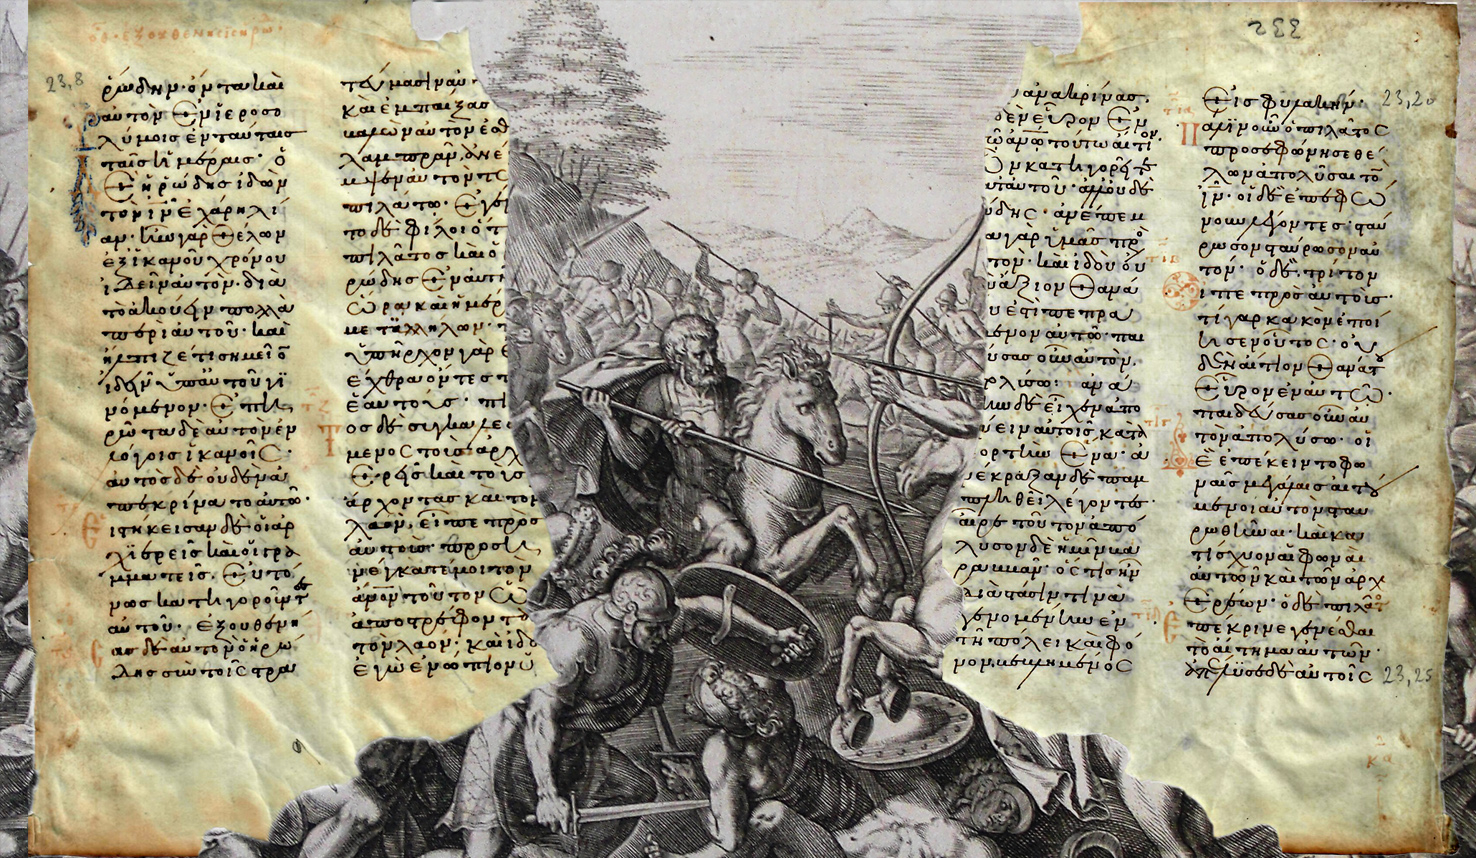 οδ· ἐξουθενήσεις ηρω·
23,8
ρώδην· ὄντα καὶ
αὐτὸν ἐν ϊεροσο
λύμοις ἐν ταύταις
ταῖς ἡμέραις· ὁ
δὲ ἡρώδης ἰδὼν
τὸν ιν ἐχάρη λί
αν· ἦν γὰρ θέλων
ἐξ ἱκανοῦ χρόνου
ἰδεῖν αὐτὸν· διὰ
τὸ ἀκούειν πολλὰ
περὶ αὐτοῦ· καὶ
ἤλπιζέ τι σημεῖο
ἰδεῖν ὑπ' αὐτοῦ γι
νόμενον· ἐπη
ρώτα δὲ αὐτὸν ἐν
λόγοις ἱκανοῖς·
αὐτὸς δὲ οὐδὲν ἀ
πεκρίνατο αὐτῶ·
εἱστήκεισαν δὲ οἱ ἀρ
χιερεῖς καὶ οἱ γρα
μματεῖς· εὐτό
νως κατηγοροῦντες
αὐτοῦ· ἐξουθενή
σας δὲ αὐτὸν ὁ ἡρώ
δης σὺν τοῖς στρα
τεύμασιν αὐ
καὶ ἐμπαίξας
βαλὼν αὐτὸν ἐσθ
λαμπρὰν, ἀνέ
μψεν αὐτὸν τῶ
πιλάτω· ἐγέ
το δὲ φίλοι ὅ τ
πιλᾶτος καὶ ὁ
ρώδης ἐν αὐτῆ
ὥρα καὶ ἡμέρ
μετ' ἀλλήλων·
ὑπῆρχον γὰρ ἐ
ἔχθρα ὄντες π
ἑαυτούς· πι
ος δὲ συγκαλεσ
μενος τοὺς ἀρχ
ιερεῖς καὶ τοὺς
ἄρχοντας καὶ τὸν
λαόν, εἶπε πρὸς
αὐτούς· προση
νέγκατέ μοι τὸν
ἄνον τοῦτον ὡς
ἀποστρέφοντα
τὸν λαόν, καὶ ἰδοὺ
ἐγὼ ἐνώπιον ὑ
ἀνακρίνας
δὲν εὗρον ἐν
ἀνω τούτω αἴτιον
ὧν κατηγορεῖτε
κατ' αὐτοῦ· ἀλλ' οὐδὲ
ώδης· ἀνέπεμ
α γὰρ ὑμᾶς πρὸ
τὸν· καὶ ἰδοὺ οὐ
ἄξιον θανά
υ ἐστὶ πεπρα
μένον αὐτῶ· παι
ύσας οὖν αὐτὸν,
πολύσω· ἀνά
κην δὲ εἶχεν ἀπο
λύειν αὐτοῖς κατὰ
ορτὴν ἕνα· ἀ
νέκραξαν δὲ παμ
πληθεὶ λέγοντες·
αἶρε τοῦτον ἀπό
λυσον δὲ ἡμῖν βα
ραββᾶν· ὅστις ἦν
διὰ στάσιν τινα
γενομένην ἐν
τῆ πόλει καὶ φό
νον βεβλημένος
23,20
εἰς φυλακὴν·
πάλιν οὖν ὁ πιλάτος
προσεφώνησε θέ
λων ἀπολῦσαι τὸ
ιν· οἱ δὲ ἐπεφώ
νουν λέγοντες· σταύ
ρωσον σταύρωσον αὐ
τόν· ὁ δὲ τρίτον
εἶπε πρὸς αὐτούς·
τί γὰρ κακὸν ἐποί
ησεν οὗτος· οὐ
δὲν αἴτιον θανάτου
εὗρον ἐν αὐτῶ·
παιδεύσας οὖν αὐ
τὸν ἀπολύσω· οἱ
δὲ ἐπέκειντο φω
ναῖς μεγάλαις αἰτού
μενοι αὐτὸν σταυ
ρωθῆναι· καὶ κα
τίσχυον αἱ φωναὶ
αὐτῶν καὶ τῶν ἀρχ
ιερέων· ὁ δὲ πιλάτος
ἐπέκρινε γενέσθαι
τὸ αἴτημα αὐτῶν·
ἀπέλυσε δὲ αὐτοῖς
23,25